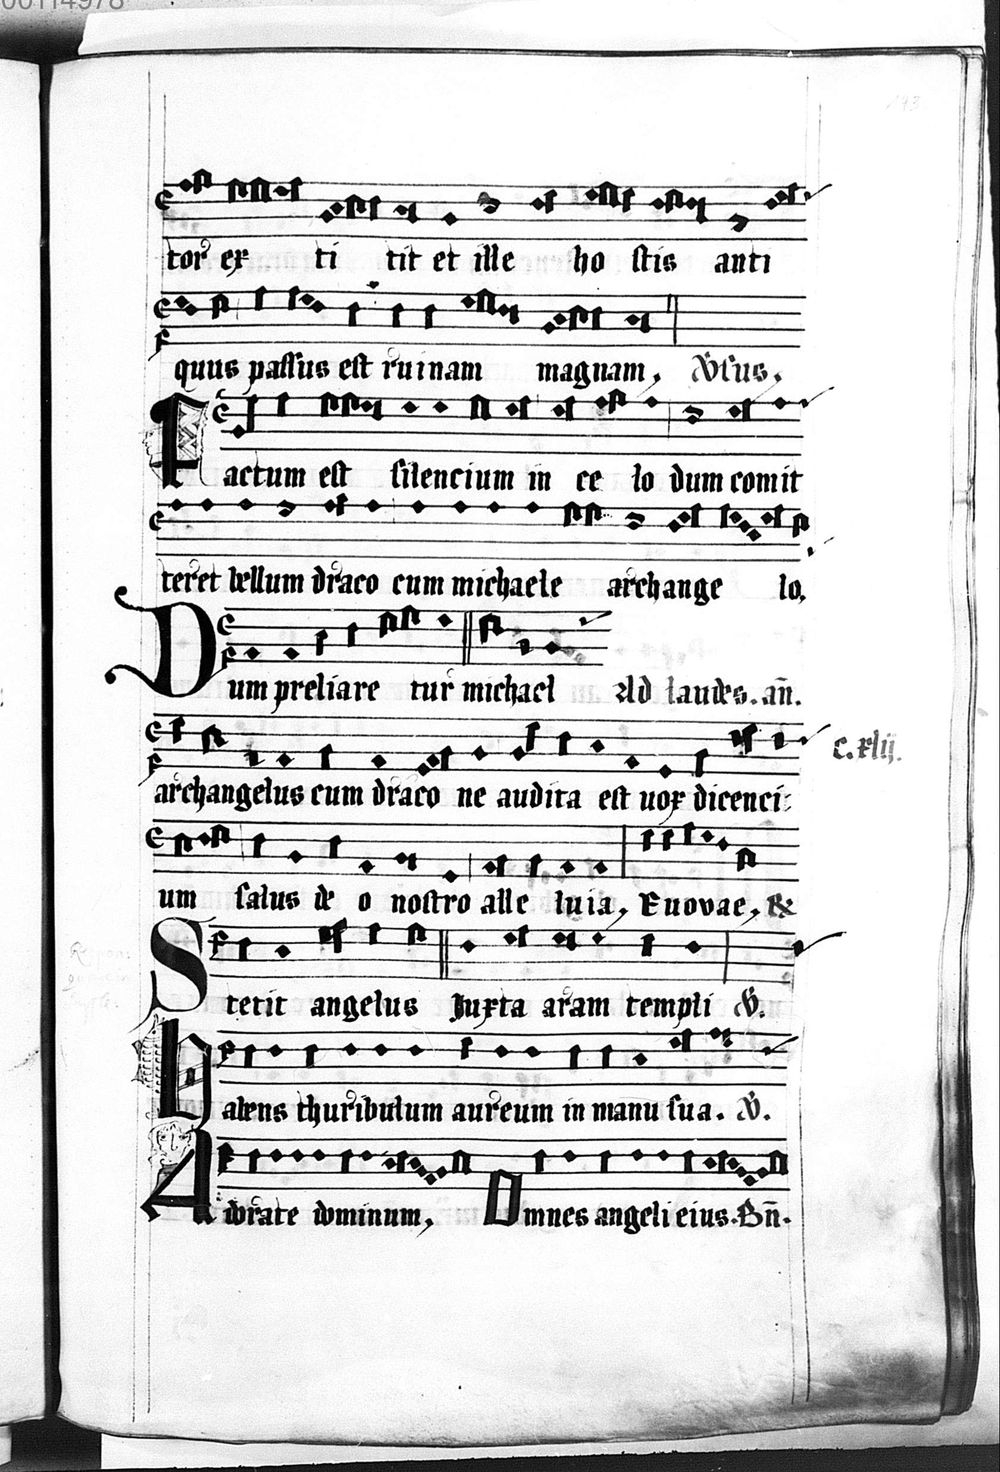 00114978
193
tor ex ti tit et ille ho stis anti
quus passus est ruinam magnam, V̓sus,
Factum est silencium in ce lo dum comit
teret bellum draco cum michaele archange lo,
Dum preliare tur michael Ad laudes. an̄.
archangelus cum draco ne audita est uox dicenci
c. xlij.
um salus de o nostro alle luia, Euovae, R
Stetit angelus Iuxta aram templi V̓.
Habens thuribulum aureum in manu sua. V̓.
Adorate dominum, Omnes angeli eius. Bn̄.